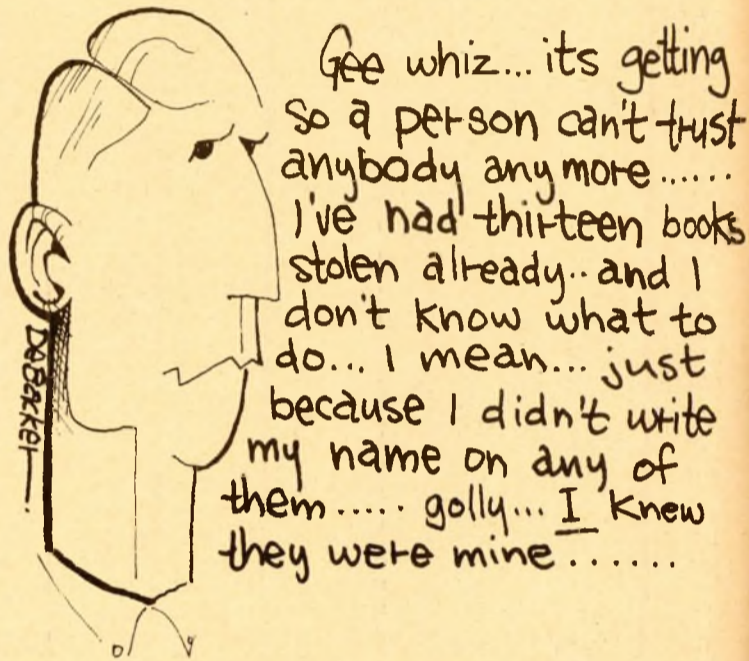 Gee whiz... its getting
so a person can't trust
anybody anymore......
I've had thirteen books
stolen already.. and I
don't know what to
do... I mean... just
because I didn't write
my name on any of
them ..... golly... I knew
they were mine .......
DeBakker